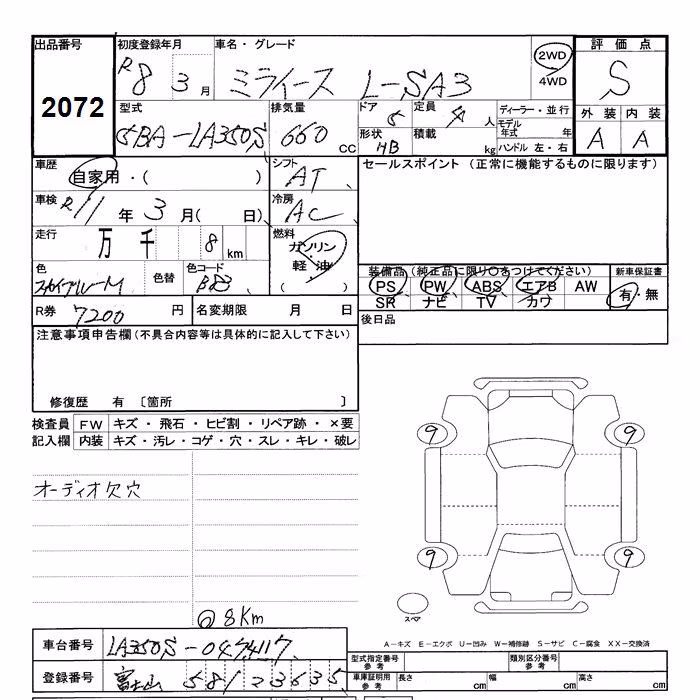 出品番号 初度登録年月 車名・グレード 評価点
2072 R8 3月 ミライース L-SA3 2WD 4WD S
型式 排気量 ドア 定員 ディーラー・並行 外装 内装
5BA-LA350S 660 cc 5 4人 モデル年式 年 A A
形状 HB 積載 kg ハンドル 左・右
車歴 シフト セールスポイント (正常に機能するものに限ります)
自家用・( ) AT
車検 冷房
R11年 3月( 日) AC
走行 燃料
万 千 8 km ガソリン・軽油
色 色替 色コード ( )
スカイブルーM B83
装備品(純正品に限り○をつけてください) 新車保証書
PS PW ABS エアB AW 有・無
SR ナビ TV カワ
R券 7200 円 名変期限 月 日 後日品
注意事項申告欄(不具合内容等は具体的に記入して下さい)
修復歴 有 〔箇所 〕
検査員 FW キズ・飛石・ヒビ割・リペア跡・×要
記入欄 内装 キズ・汚レ・コゲ・穴・スレ・キレ・破レ
9 9
オーディオ欠穴
9 9
スペア
@8Km
A-キズ E-エクボ U-凹み W-補修跡 S-サビ C-腐食 XX-交換済
車台番号 LA350S-0474117
型式指定番号 参考 類別区分番号 参考
登録番号 富士山 581 2 3635
車庫証明用 参考 長さ cm 幅 cm 高さ cm